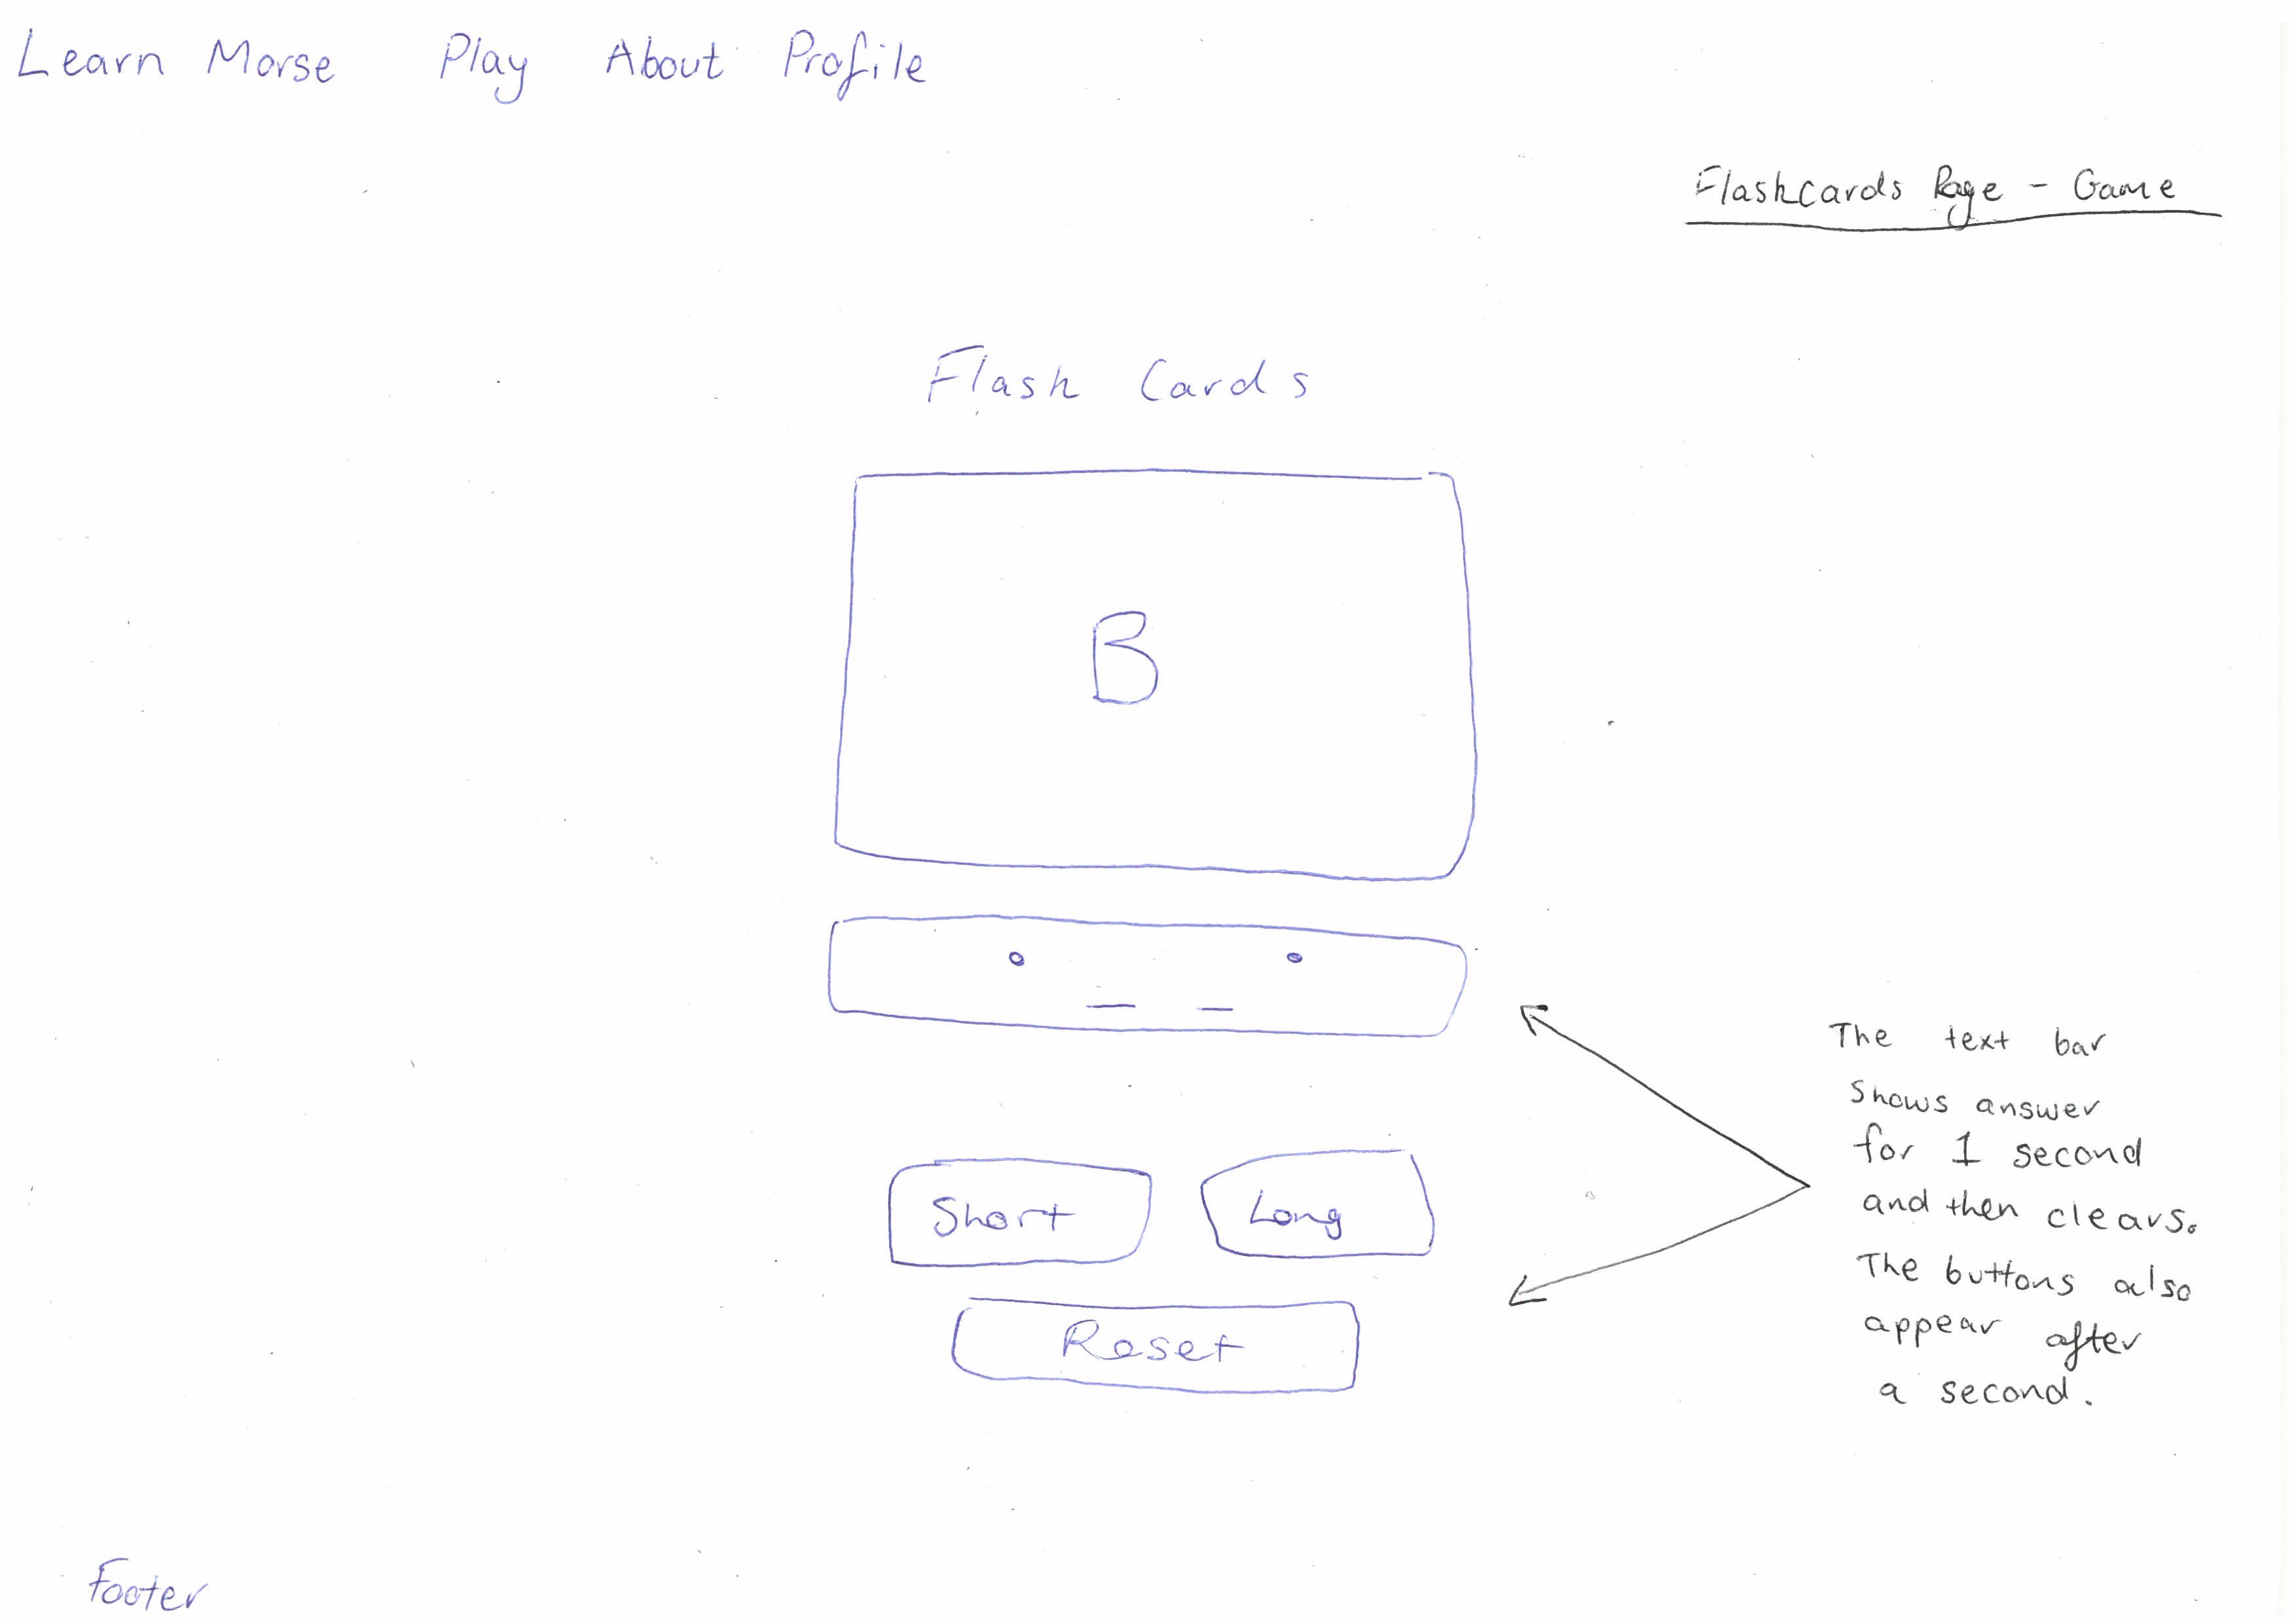 Learn Morse Play About Profile
Flashcards Page - Game
Flash Cards
B
Short Long
Reset
The text bar
shows answer
for 1 second
and then clears.
The buttons also
appear after
a second.
Footer